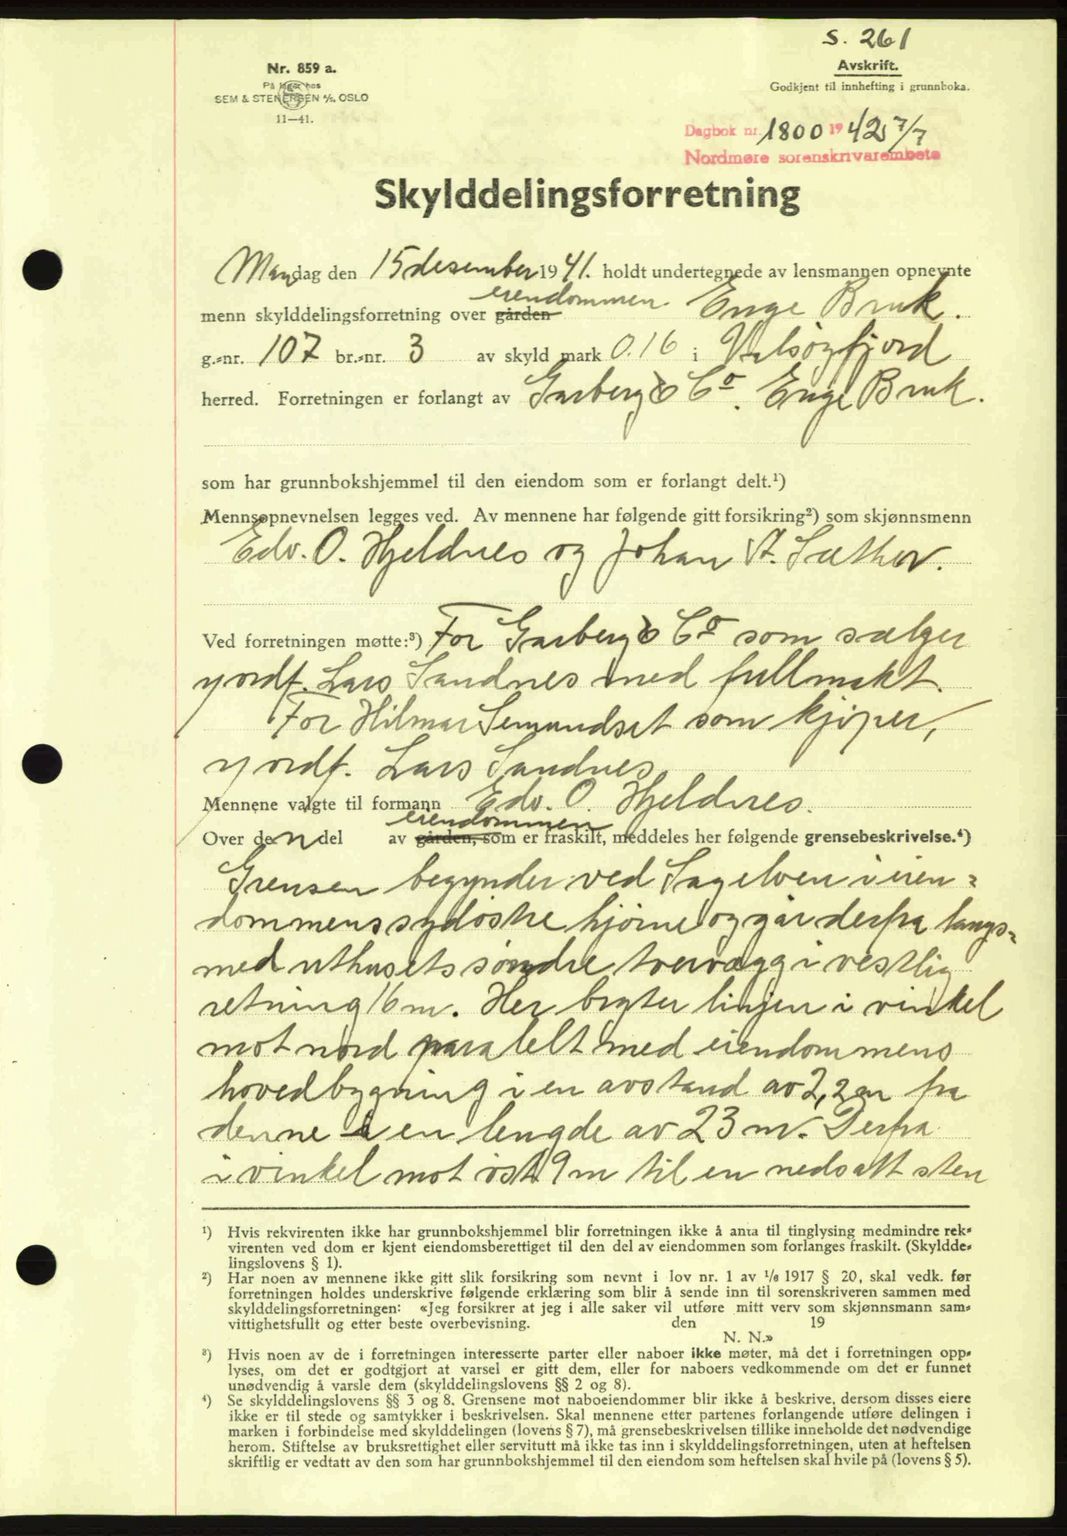 S. 261
Avskrift.
Godkjent til innhefting i grunnboka.
Nr. 859 a.
På lager hos
SEM & STENERSEN A/S. OSLO
11—41.
Dagbok nr. 1800 1942 7/7
Nordmøre sorenskrivarembete
Skylddelingsforretning
Mandag den 15 desember 1941. holdt undertegnede av lensmannen opnevnte
eiendommen
menn skylddelingsforretning over gården Enge Bruk.
g.-nr. 107 br.-nr. 3 av skyld mark 0.16 i Valsøyfjord
herred. Forretningen er forlangt av Garberg & Co. Enge Bruk.
som har grunnbokshjemmel til den eiendom som er forlangt delt.¹)
Mennsopnevnelsen legges ved. Av mennene har følgende gitt forsikring²) som skjønnsmenn
Edv. O. Hjeldnes og Johan St. Sæther.
Ved forretningen møtte:³) For Garberg & Co som sælger
yordf. Lars Sandnes med fullmakt.
For Hilmar Semundset som kjøper,
yordf. Lars Sandnes
Mennene valgte til formann Edv. O. Hjeldnes.
eiendommen
Over den del av gården, som er fraskilt, meddeles her følgende grensebeskrivelse.⁴)
Grensen begynder ved Sagelven i eien-
dommens sydøstre hjørne og går derfra langs-
med uthusets søndre tvervægg i vestlig
retning 16 m. Her bryter linjen i vinkel
mot nord paralelt med eiendommens
hovedbygning i en avstand av 2,2 m fra
denne i en lengde av 23 m. Derfra
i vinkel mot øst 9 m til en nedsatt sten
¹) Hvis rekvirenten ikke har grunnbokshjemmel blir forretningen ikke å anta til tinglysing medmindre rek-
virenten ved dom er kjent eiendomsberettiget til den del av eiendommen som forlanges fraskilt. (Skyldde-
lingslovens § 1).
²) Har noen av mennene ikke gitt slik forsikring som nevnt i lov nr. 1 av 1/8 1917 § 20, skal vedk. før
forretningen holdes underskrive følgende erklæring som blir å sende inn til sorenskriveren sammen med
skylddelingsforretningen: «Jeg forsikrer at jeg i alle saker vil utføre mitt verv som skjønnsmann sam-
vittighetsfullt og etter beste overbevisning. den 19
N. N.»
³) Hvis noen av de i forretningen interesserte parter eller naboer ikke møter, må det i forretningen opp-
lyses, om det er godtgjort at varsel er gitt dem, eller for naboers vedkommende om det er funnet
unødvendig å varsle dem (skylddelingslovens §§ 2 og 8).
⁴) Se skylddelingslovens §§ 3 og 8. Grensene mot naboeiendommer blir ikke å beskrive, dersom disses eiere
ikke er til stede og samtykker i beskrivelsen. Skal mennene etter partenes forlangende utføre delingen i
marken i forbindelse med skylddelingen (lovens § 7), må grensebeskrivelsen tillike inneholde det nødvendige
herom. Stiftelse av bruksrettighet eller servitutt må ikke tas inn i skylddelingsforretningen, uten at heftelsen
skriftlig er vedtatt av den som har grunnbokshjemmel til den eiendom som heftelsen skal hvile på (lovens § 5).